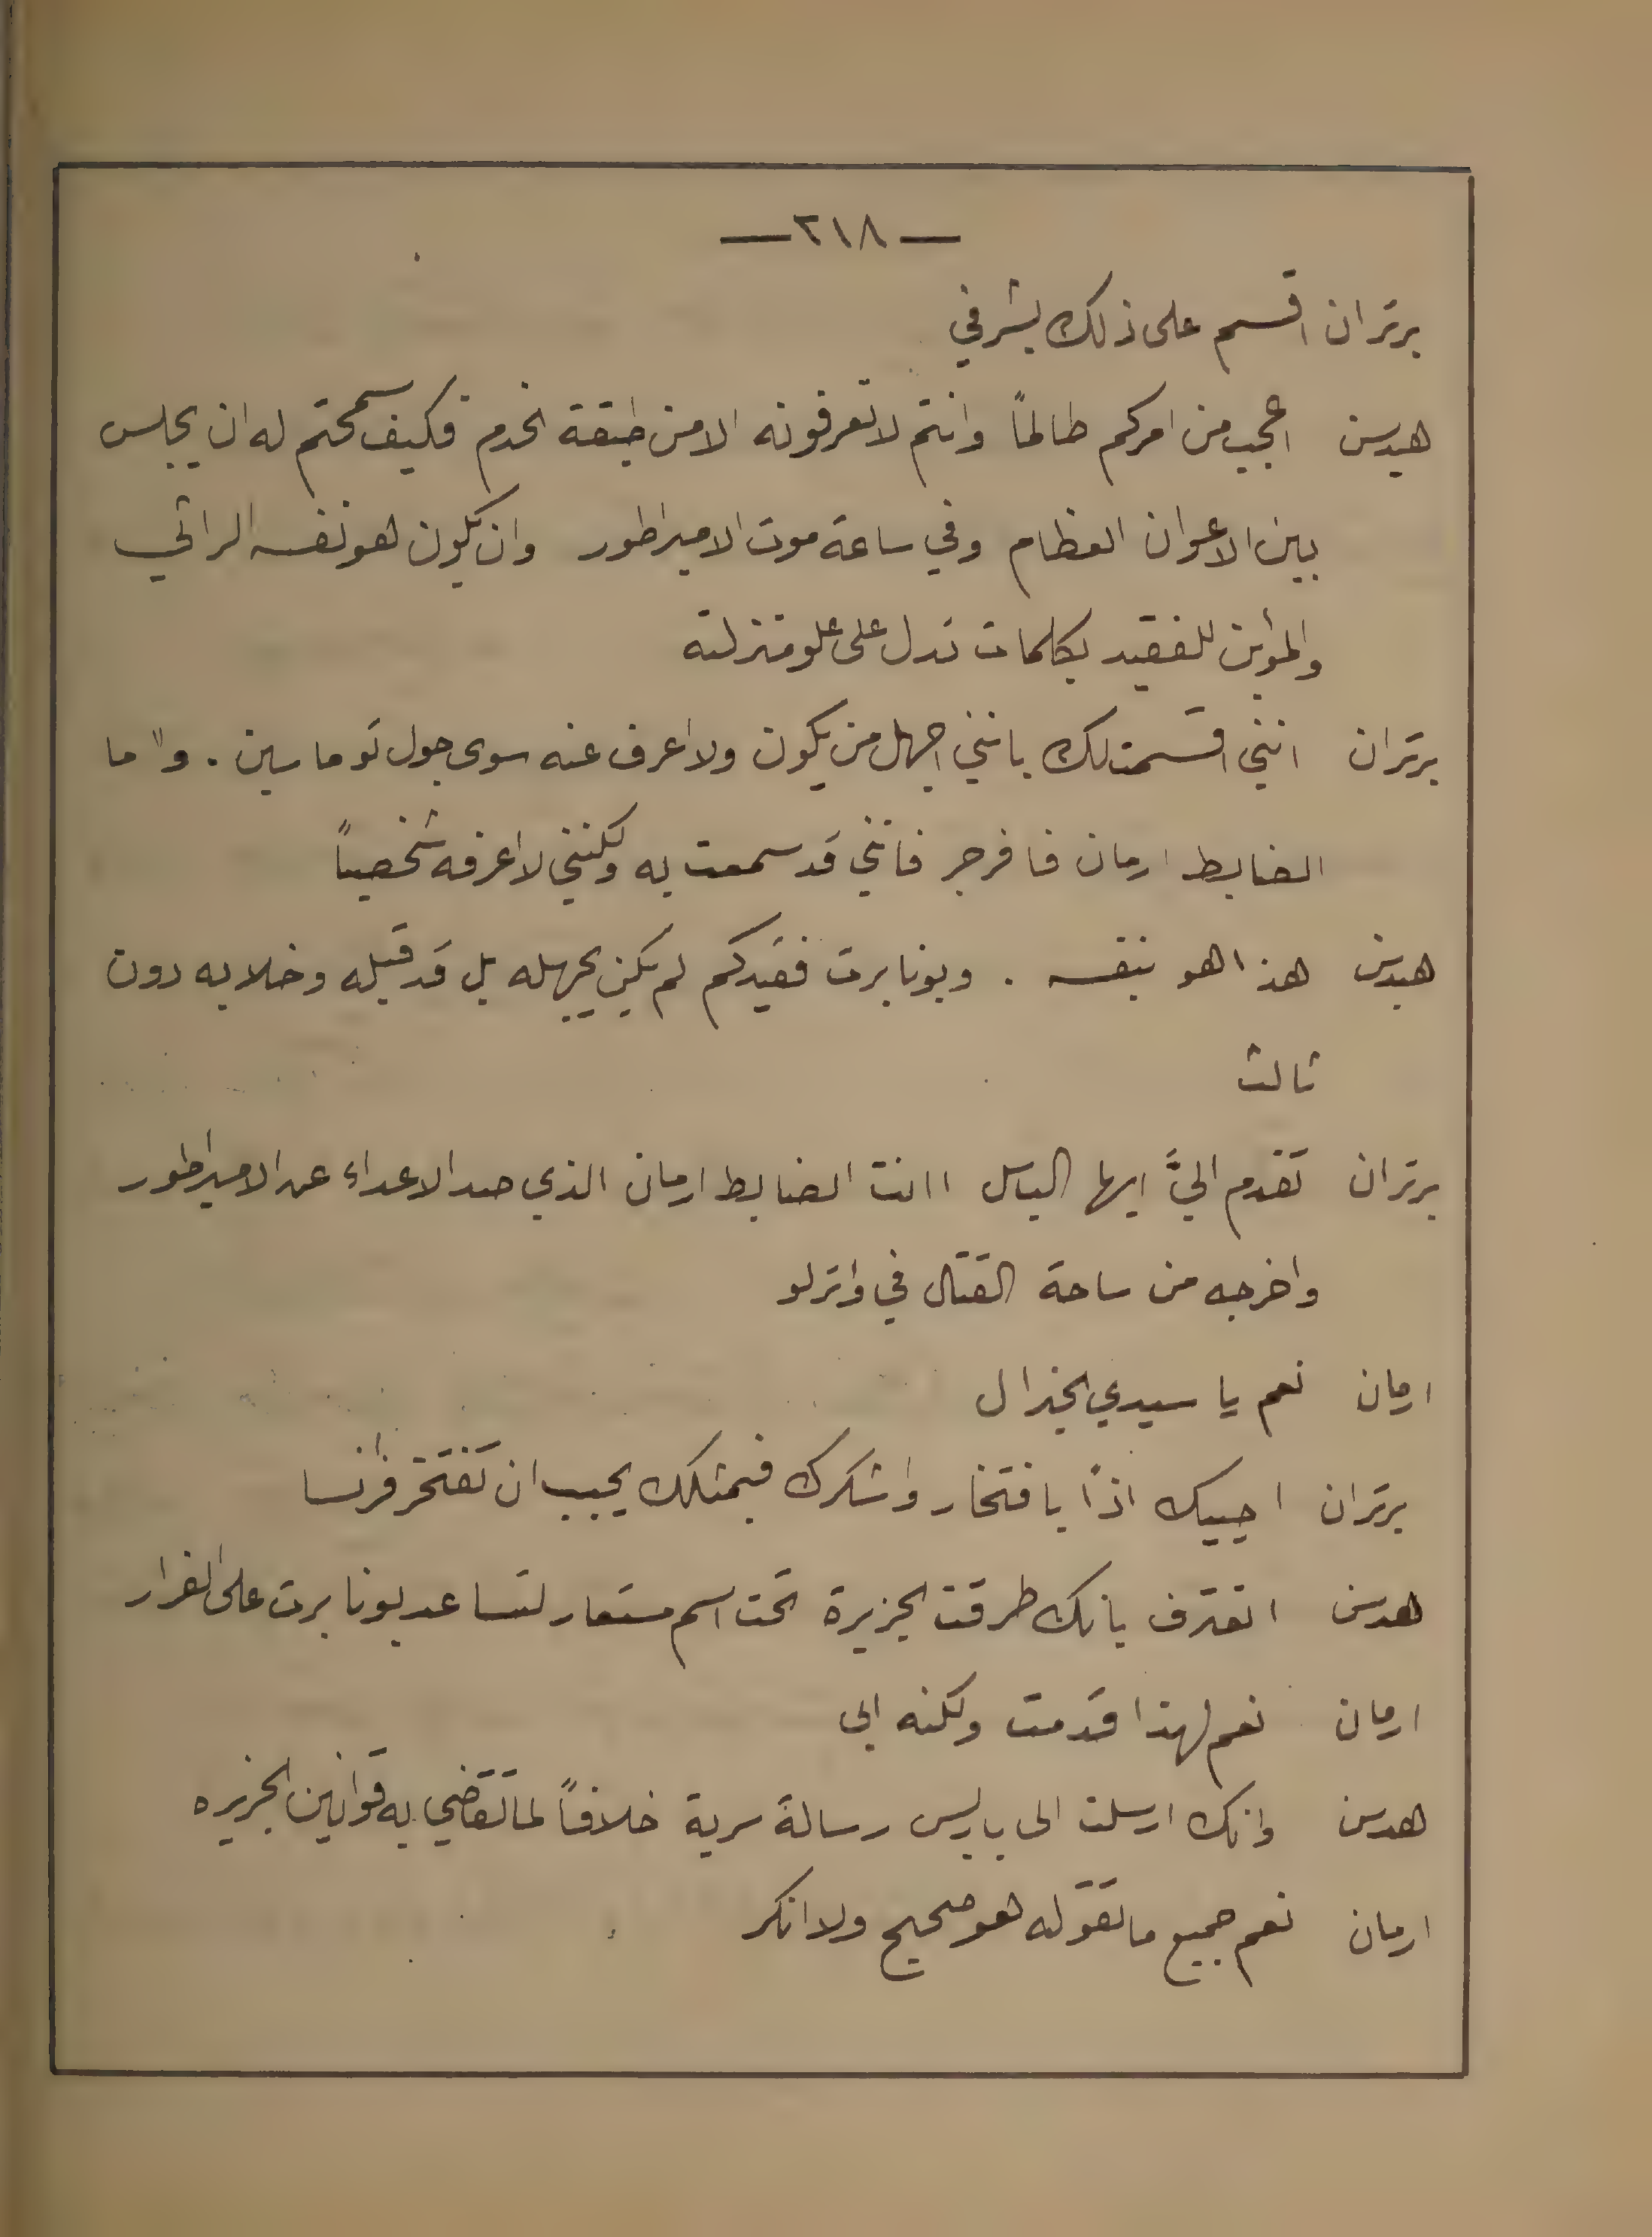 —٢١٨—
برتران اقسم على ذلك بشرفي
هدسن اعجب من امركم طالماً وانتم لا تعرفونه الا من طبقة الخدم فكيف سمحتم له ان يجلس
بين الاعوان العظام وفي ساعة موت الامبراطور وان يكون هو نفسه الراثي
والمؤبن للفقيد بكلمات تدل على علو منزلته
برتران انني اقسمت لك بانني اجهل من يكون ولا اعرف عنه سوى جول توماسين . واما
الضابط ارمان فافرجر فانني قد سمعت به ولكنني لا اعرفه شخصياً
هدسن هذا هو بنفسه . وبونابرت فقيدكم لم يكن يجهله بل قد قبله وخلا به دون
ثالث
برتران تقدم اليَّ ايها الباسل اانت الضابط ارمان الذي صد الاعداء عن الامبراطور
واخرجه من ساحة القتال في واترلو
ارمان نعم يا سيدي الجنرال
برتران احييك اذاً بافتخار واشكرك فبمثلك يجب ان تفتخر فرنسا
هدسن اتعترف بانك طرقت الجزيرة تحت اسم مستعار لتساعد بونابرت على الفرار
ارمان نعم لهذا قدمت ولكنه ابى
هدسن وانك ارسلت الى باريس رسالة سرية خلافاً لما تقضي به قوانين الجزيره
ارمان نعم جميع ما تقوله هو صحيح ولا انكر